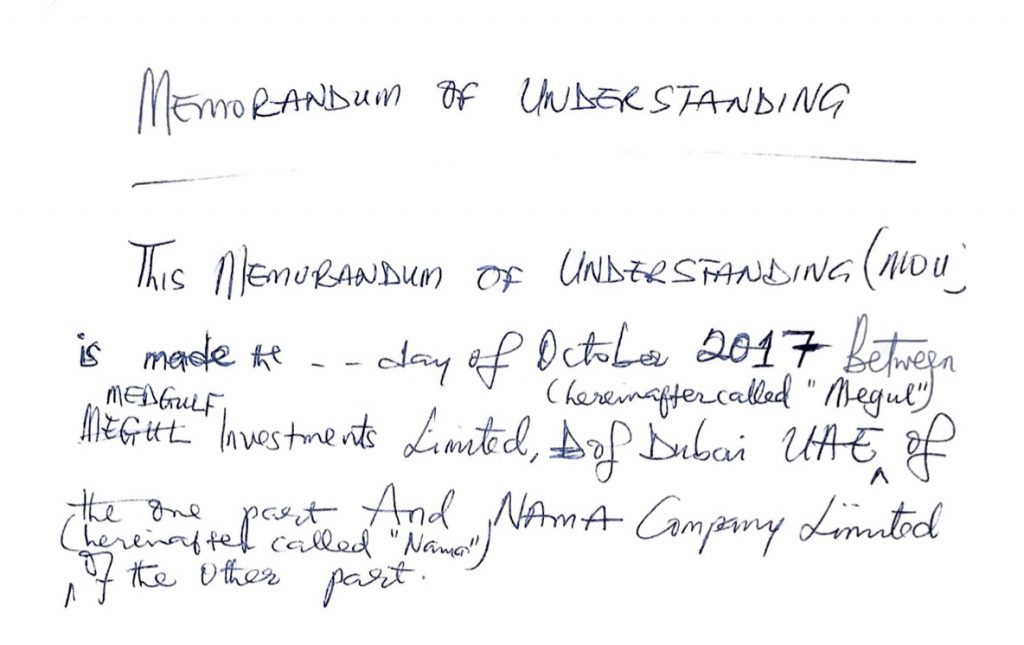 MEMORANDUM OF UNDERSTANDING
This MEMURANDUM OF UNDERSTANDING (MOU)
is made the -- day of October 2017 Between
MEDGULF (hereinafter called "Megul")
MEGUL Investments Limited, of Dubai UAE ^ of
the one part And NAMA Company Limited
(hereinafter called "Nama")
^ of the other part.